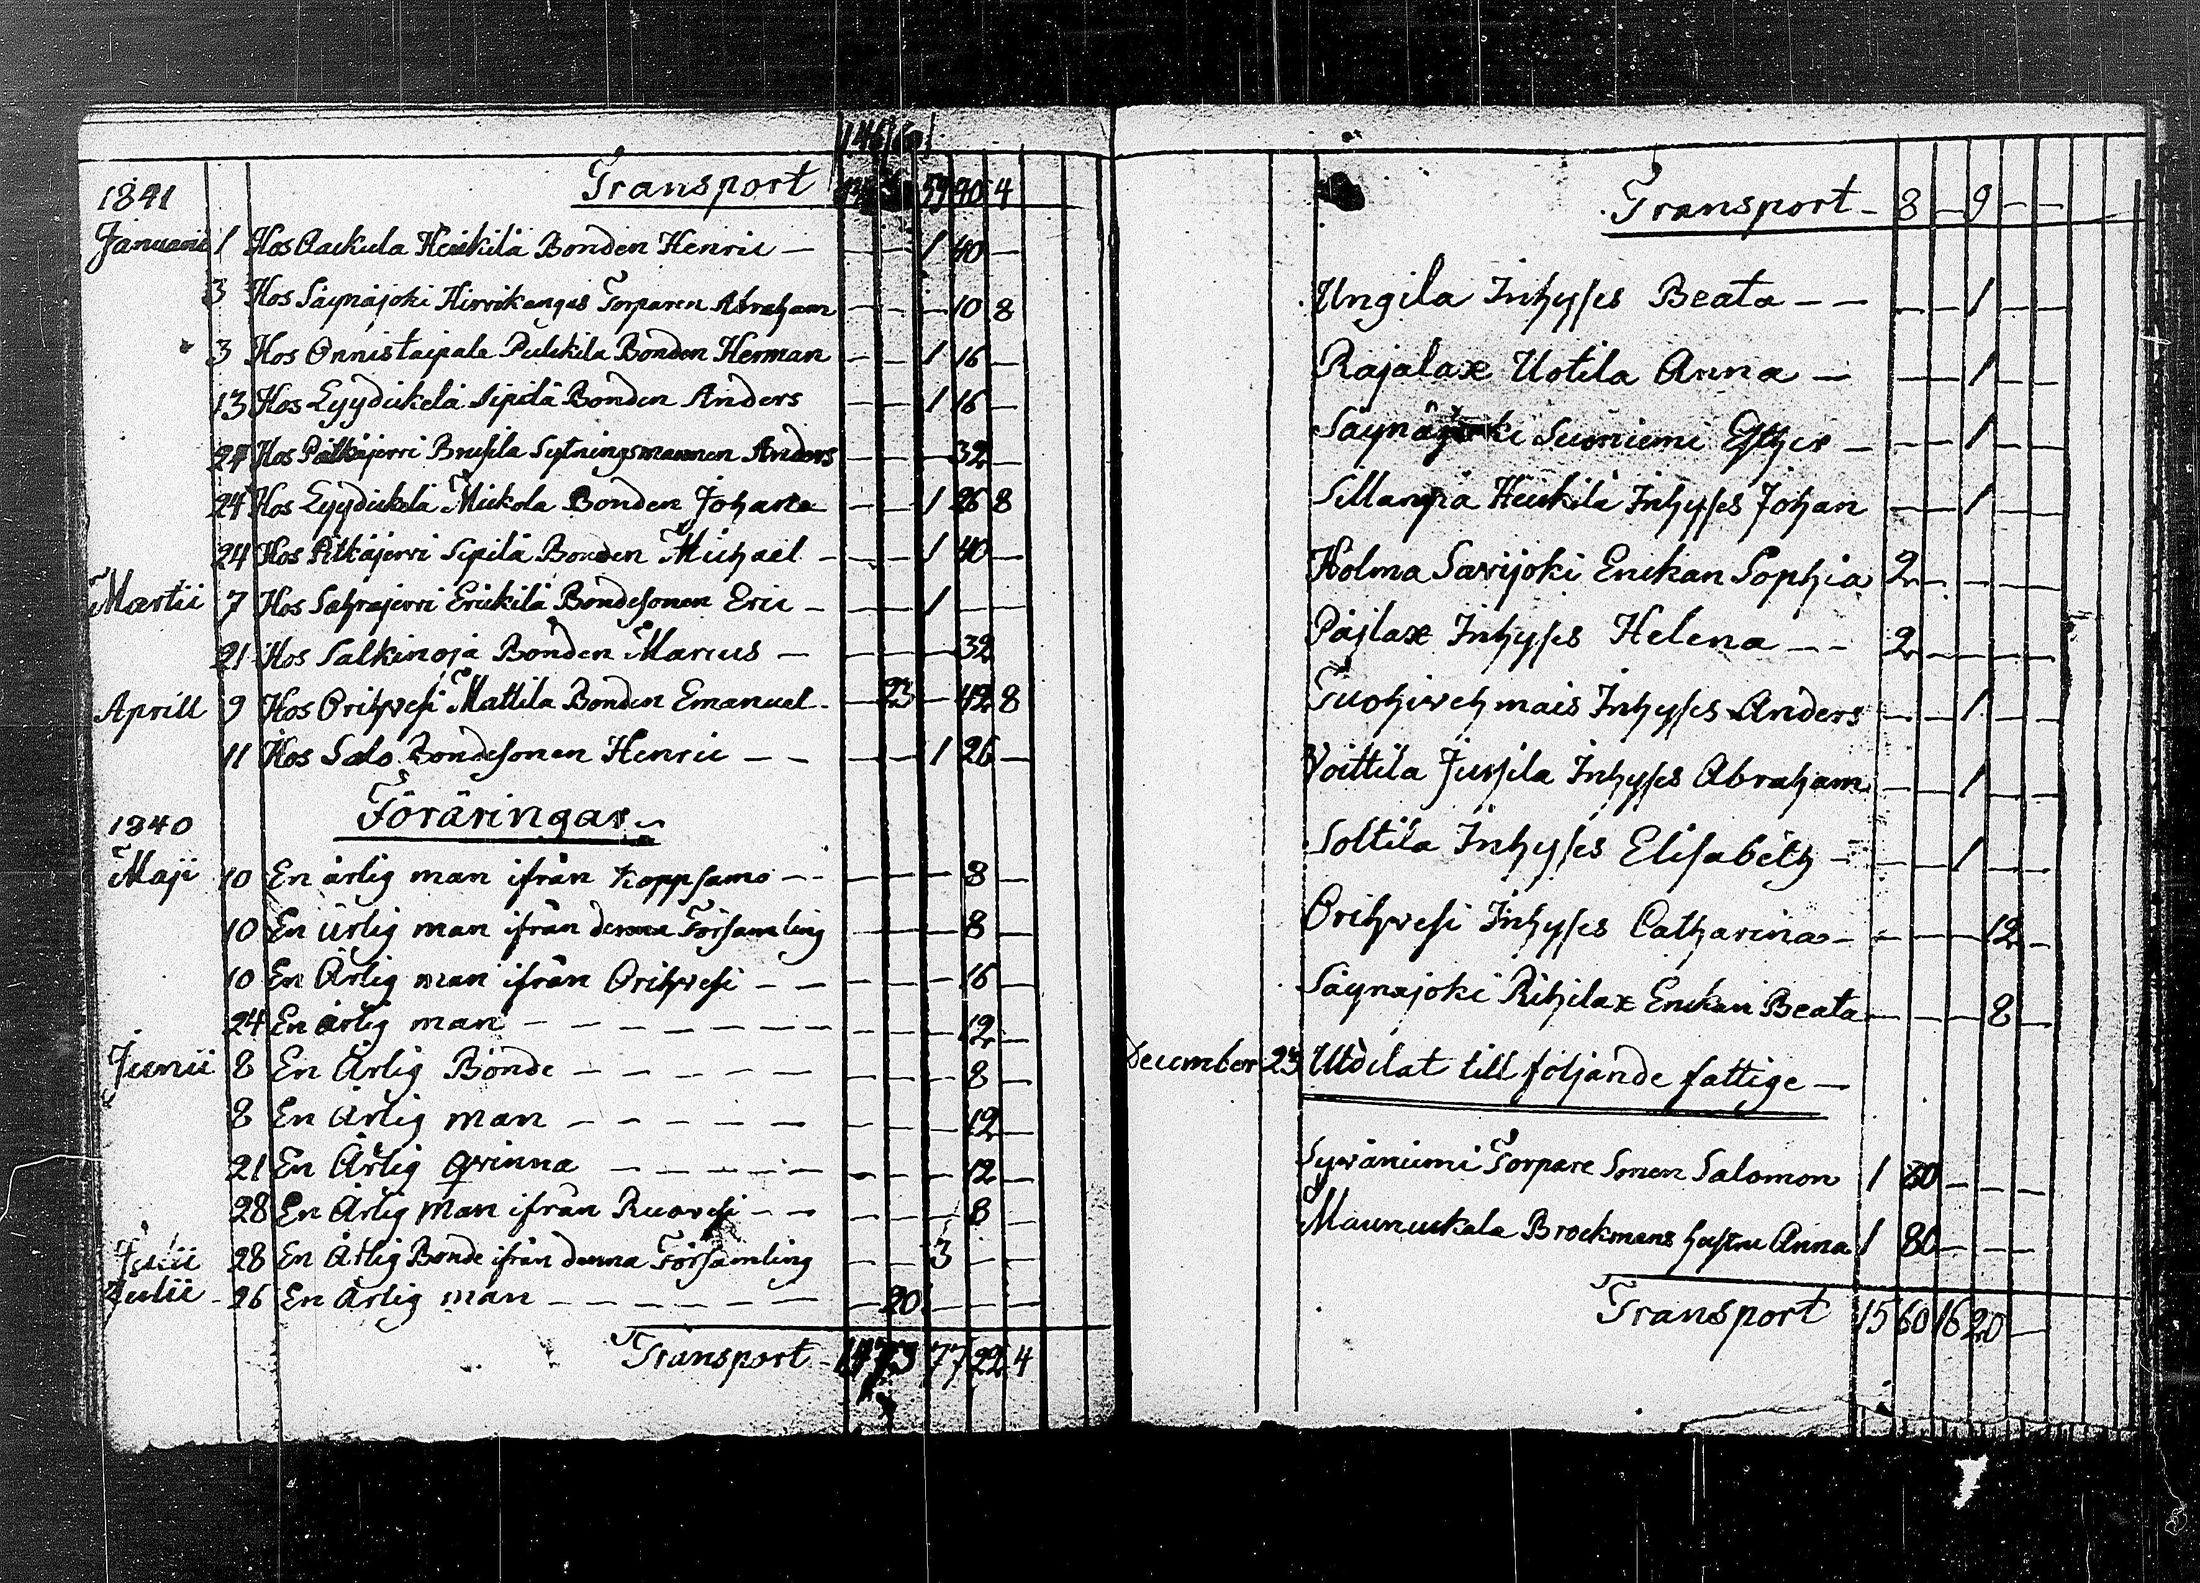 Transport 59 40 4
1841
Januarii 1 Hos Packula Heickilä Bonden Henric — — — 1 40 —
3 Hos Säynäjoki Hirvikangas Torparen Abraham — — — 10 8
3 Hos Onnistaipale Pulckila Bonden Herman — — 1 16 —
13 Hos Lyydickelä Sipilä Bonden Anders — — 1 16 —
24 Hos Pitkäjervi Brusila Sytningsmannen Anders — — — 32 —
24 Hos Lyydickelä Mickola Bonden Johan — — 1 26 8
24 Hos Pitkäjervi Sipilä Bonden Michael — — — 1 40 —
Martii 7 Hos Sahrajervi Erickilä Bondesonen Eric — — — 1 — —
21 Hos Salkinoja Bonden Marcus — — — — 32
Aprill 9 Hos Orihvesi Mattila Bonden Emanuel — — 23 — 42 8
11 Hos Salo Bondesonen Henric — — — — 1 26 —
Föräringar
1840
Maji 10 En ärlig man ifrån Koppsamo — — — — — 8 —
10 En ärlig man ifrån denna Församling — — — 8 —
10 En Ärlig man ifrån Orihvesi — — — — — 16 —
24 En ärlig man — — — — — — — — — — 12 —
Junii 8 En Ärlig Bonde — — — — — — — — 8 —
8 En Ärlig man — — — — — — — — 12 —
21 En Ärlig qvinna — — — — — — — — 12 —
28 En Ärlig man ifrån Ruovesi — — — — — 8 —
Julii 28 En Ärlig Bonde ifrån denna Församling — — 3 — —
Julii 26 En Ärlig man — — — — — — — 20 — — —
Transport 77 22 4
Transport — 8 — 9 — —
Ungila Inhyses Beata — — — — 1 — —
Rajalax Uotila Anna — — — 1 — —
Säynäjoki Suoniemi Esther — — — 1 — —
Sillanpiä Heickilä Inhyses Johan — — 1 — —
Holma Savijoki Enckan Sophia 2 — — — —
Päjlax Inhyses Helena — — 2 — — — —
Tuohivehmais Inhyses Anders — — 1 — —
Voittila Jussila Inhyses Abraham — — 1 — —
Soltila Inhyses Elisabeth — — — 1 — —
Orihvesi Inhyses Catharina — — — — 12 —
Säynäjoki Rihilax Enckan Beata — — — 8 —
December 23 Utdelat till följande fattige —
Syväniemi Torpare Sonen Salomon 1 80 — — —
Maunuckala Brockmans hustru Anna 1 80 — — —
Transport 15 60 16 20 —